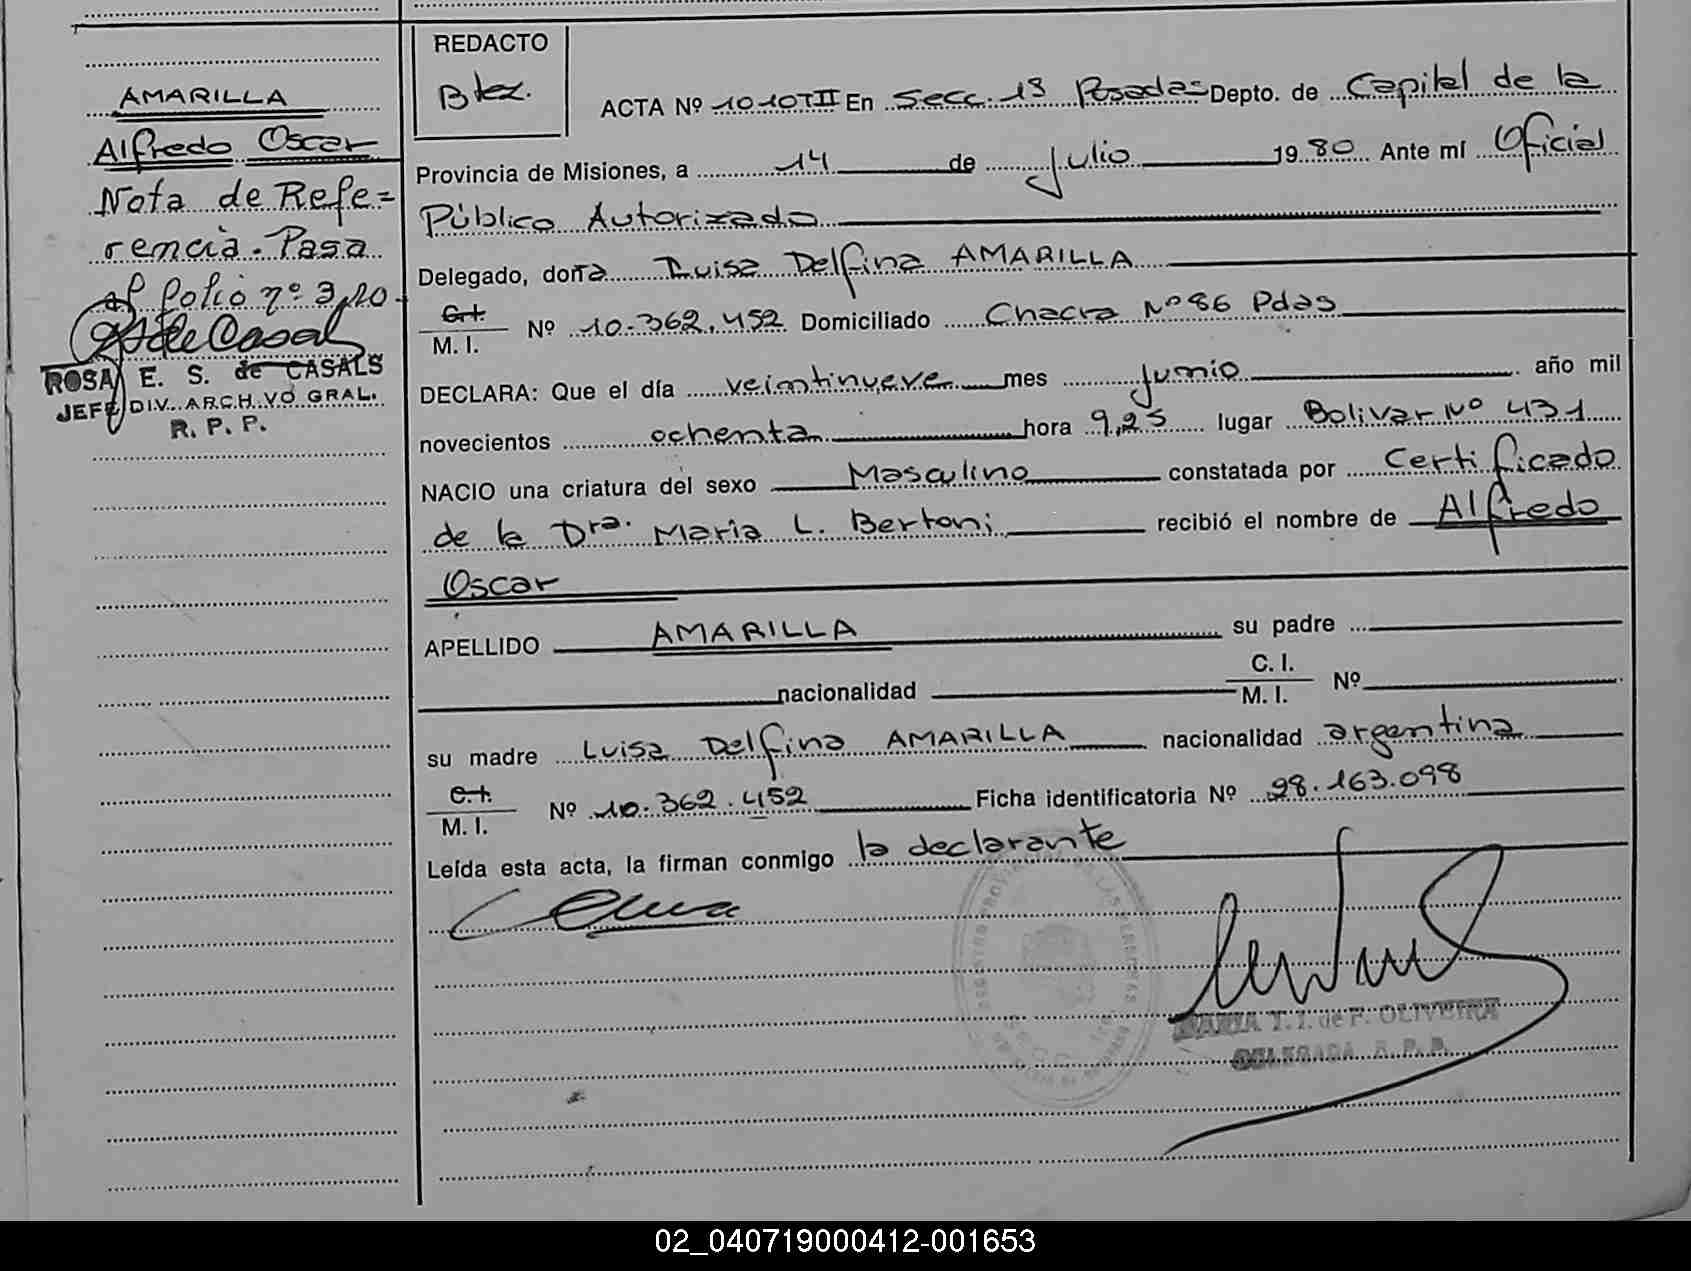 AMARILLA
Alfredo Oscar
Nota de Refe=
rencia. Pasa
al folio nº 310-
ROSA E. S. de CASALS
JEFE DIV. ARCHIVO GRAL.
R. P. P.
REDACTO
Btez.
ACTA Nº 1010TII En Secc. 1ª Posadas Depto. de Capital de la
Provincia de Misiones, a 14 de Julio 1980 Ante mí Oficial
Público Autorizado
Delegado, doña Luisa Delfina AMARILLA
C.I.
M. I. Nº 10.362.452 Domiciliado Chacra Nº 86 Pdas
DECLARA: Que el día veintinueve mes Junio año mil
novecientos ochenta hora 9,25 lugar Bolivar Nº 431
NACIO una criatura del sexo Masculino constatada por Certificado
de la Dra. Maria L. Bertoni recibió el nombre de Alfredo
Oscar
APELLIDO AMARILLA su padre
nacionalidad C. I.
M. I. Nº
su madre Luisa Delfina AMARILLA nacionalidad argentina
C.I.
M. I. Nº 10.362.452 Ficha identificatoria Nº 28.163.098
Leída esta acta, la firman conmigo la declarante
MARIA T. I. de F. OLIVEIRA
DELEGADA R. P. P.
02_040719000412-001653